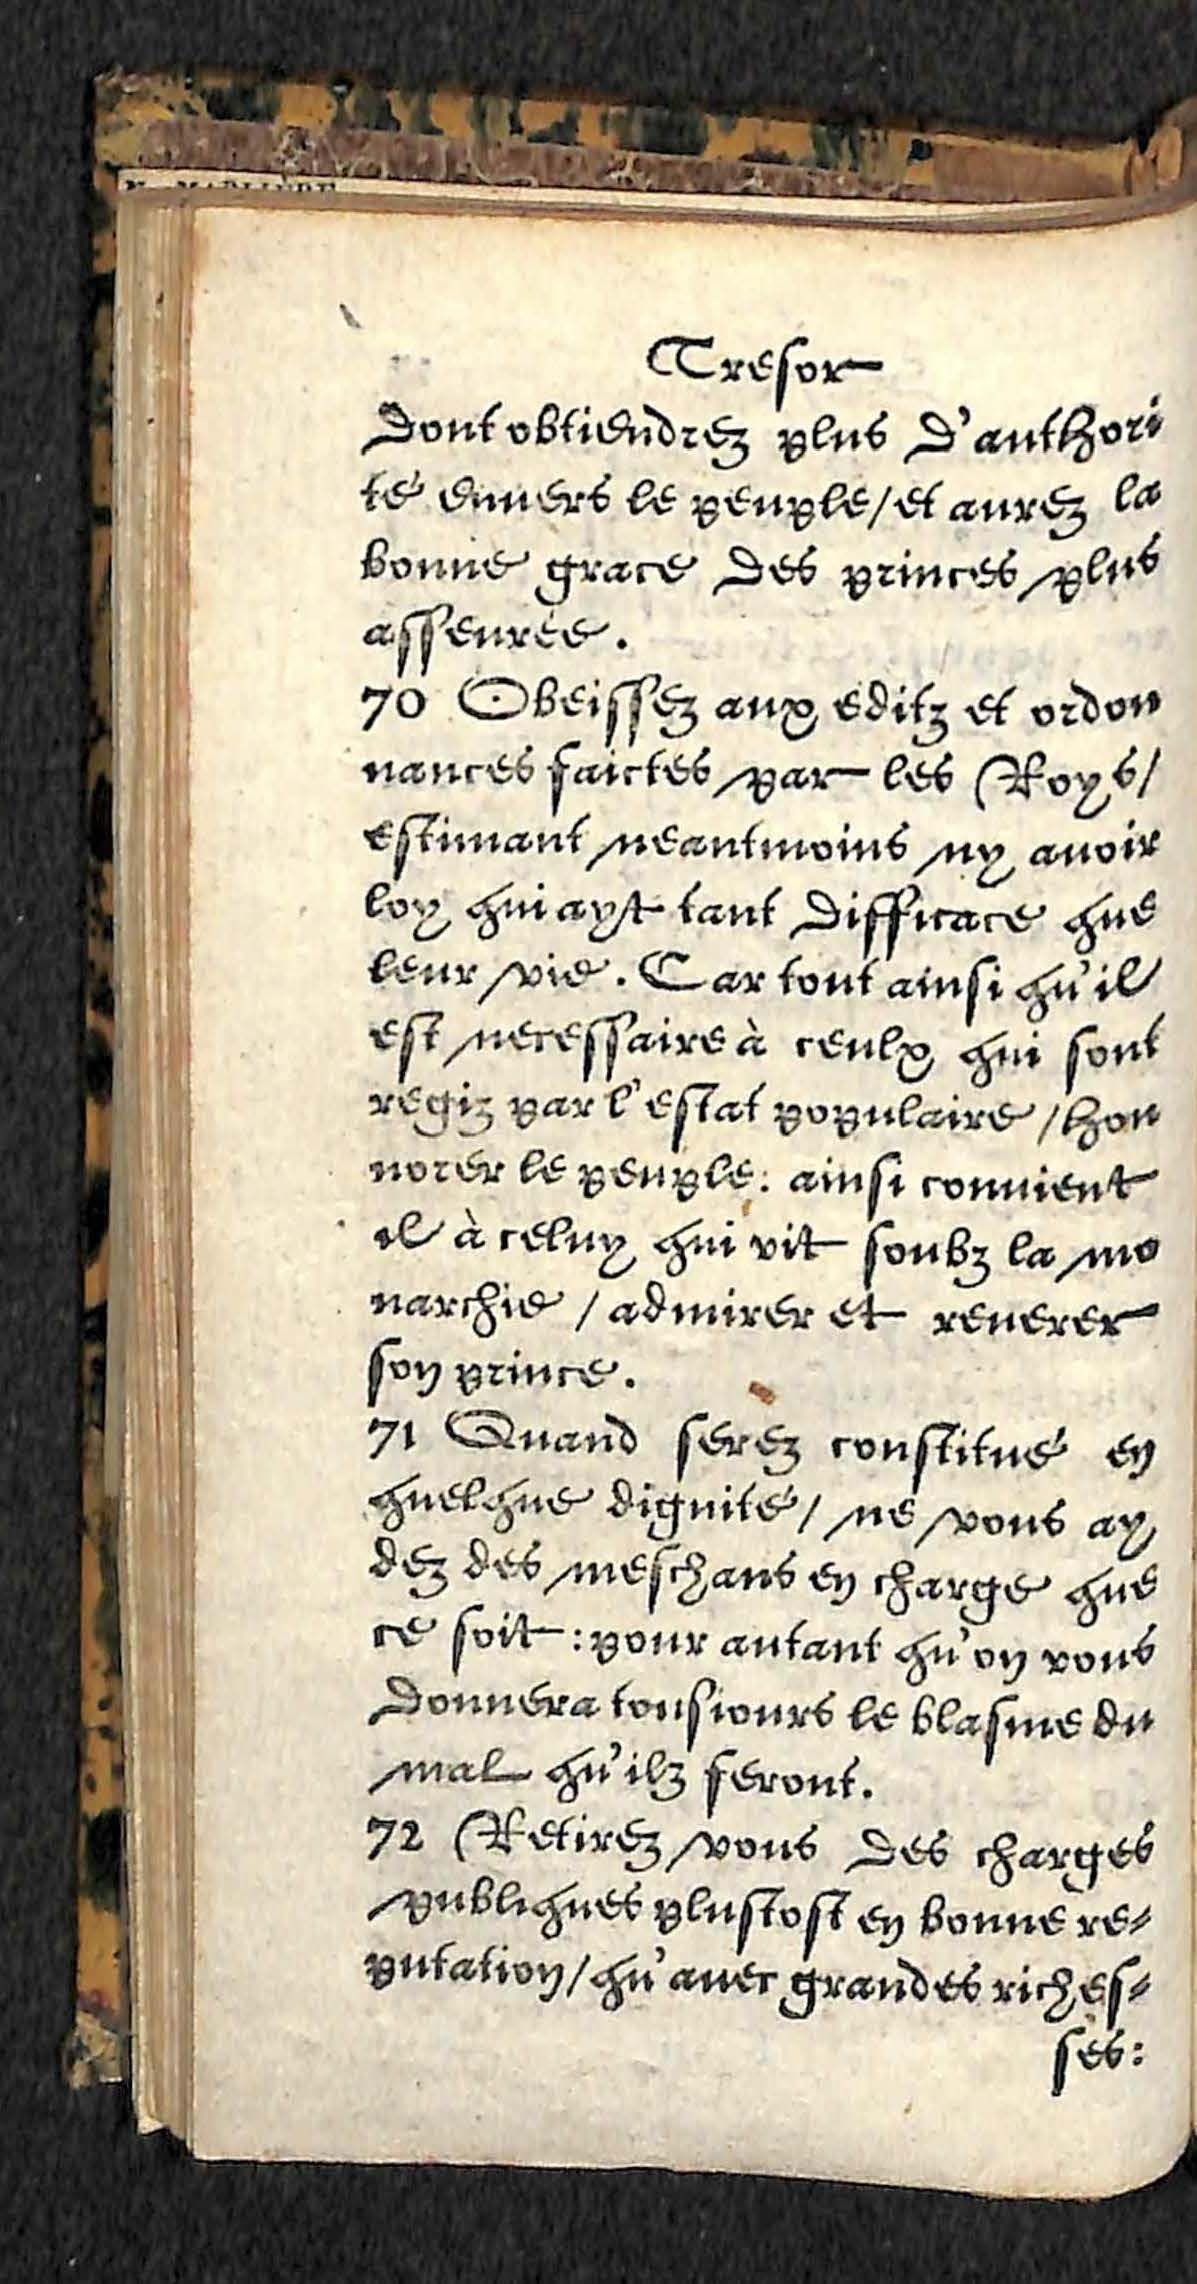 Tresor
Dont obtiendrez plus d'authori
té enuers le peuple/et aurez la
bonne grace des princes plus
asseurée.
70 Obeissez aux editz et ordon
nances faictes par les Roys/
estimant neantmoins ny auoir
loy qui ayt tant difficace que
leur vie. Car tout ainsi qu'il
est necessaire à ceulx qui sont
regiz par l'estat populaire/hon
norer le peuple: ainsi conuient
il à celuy qui vit soubz la mo
narchie/admirer et reuerer
son prince.
71 Quand serez constitué en
quelque dignité/ne vous ay
dez des meschans en charge que
ce soit: pour autant qu'on vous
donnera tousiours le blasme du
mal qu'ilz feront.
72 Retirez vous des charges
publiques plustost en bonne re-
putation/qu'auec grandes riches-
ses: